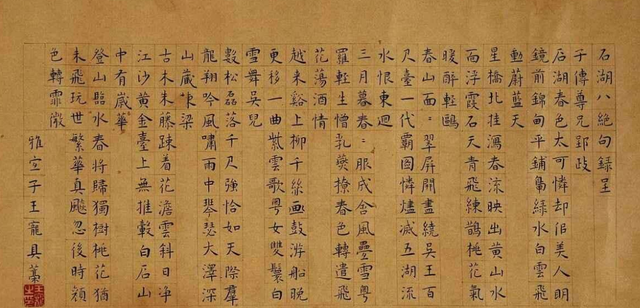 石湖八絕句錄呈
子傳尊兄郢政
石湖春色太可憐却洎美人明
鏡前錦甸平鋪鳧綠水白雲飛
動蔚藍天
星橋北挂瀉春流映出黄山水
面浮霞石天青飛練鵲桃花氣
暖醉輕鷗
春山面〻翠屏開盡繞吳王百
尺臺一代霸圖憐燼滅五湖流
水恨東迴
三月暮春〻服成含風疊雪粤
羅輕生憎乳燕撩春色轉遣飛
花蕩酒情
越来谿上柳千絲畫鼓游船晚
更移一曲紫雲歌粤女雙鬟白
雪舞吳兒
數松磊落千尺強恰如天際羣
龍翔吟風嘯雨中琴瑟大澤深
山蔵棟梁
古木朱藤踈着花澹雲斜日淨
江沙黄金臺上無推轂白石山
中有歲華
登山臨水春将歸獨樹桃花猶
未飛玩世繁華真飈忽後時顔
色轉霏微
雅宜子王寵具藁